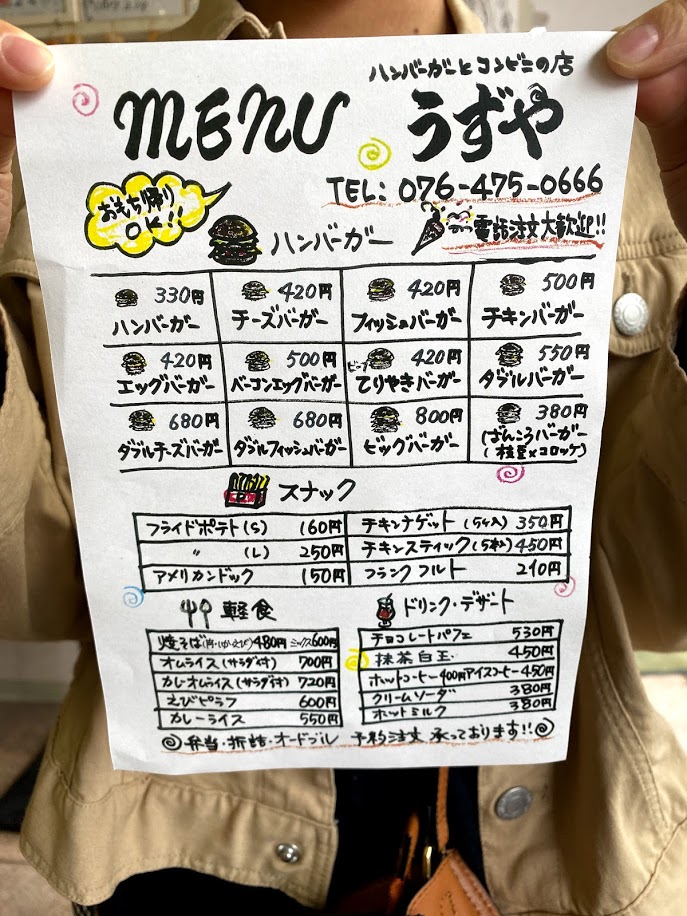 ハンバーガーとコンビニの店
MENU うずや
TEL: 076-475-0666
おもち帰り
OK!!
電話注文大歓迎!!
ハンバーガー
330円 420円 420円 500円
ハンバーガー チーズバーガー フィッシュバーガー チキンバーガー
420円 500円 420円 550円
エッグバーガー ベーコンエッグバーガー ビーフてりやきバーガー ダブルバーガー
680円 680円 800円 380円
ダブルチーズバーガー ダブルフィッシュバーガー ビッグバーガー ばんころバーガー
(枝豆×コロッケ)
スナック
フライドポテト(S) 160円 チキンナゲット(5ケ入) 350円
〃 (L) 250円 チキンスティック(5本入) 450円
アメリカンドック 150円 フランクフルト 210円
軽食
焼そば(肉・いか・えび) 480円 ミックス600円
オムライス(サラダ付) 700円
カレーオムライス(サラダ付) 720円
えびピラフ 600円
カレーライス 550円
ドリンク・デザート
チョコレートパフェ 530円
抹茶白玉 450円
ホットコーヒー400円アイスコーヒー450円
クリームソーダ 380円
ホットミルク 380円
弁当・折詰・オードブル 予約注文 承っております!!